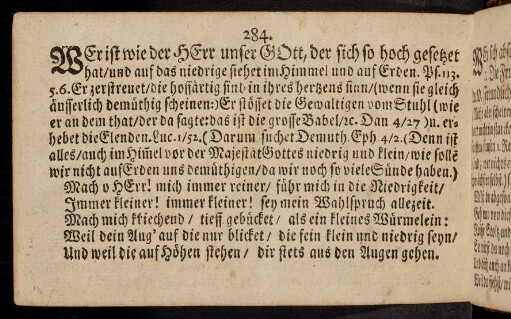 284.
WEr ist wie der HErr unser GOtt, der sich so hoch gesetzet
hat/und auf das niedrige siehet im Himmel und auf Erden. Ps. 113.
5.6. Er zerstreuet/die hoffärtig sind in ihres hertzens sinn/(wenn sie gleich
äusserlich demüthig scheinen:) Er stösset die Gewaltigen vom Stuhl (wie
er an dem that/der da sagte: das ist die grosse Babel/ꝛc. Dan 4/27) u. er-
hebet die Elenden. Luc. 1/52. (Darum suchet Demuth. Eph 4/2. (Denn ist
alles/auch im Him̃el vor der Majestät Gottes niedrig und klein/wie solle͂
wir nicht auf Erden uns demüthigen/da wir noch so viele Sünde haben.)
Mach o HErr! mich immer reiner/ führ mich in die Niedrigkeit/
Immer kleiner! immer kleiner! sey mein Wahlspruch allezeit.
Mach mich kriechend/ tieff gebücket/ als ein kleines Würmelein:
Weil dein Aug' auf die nur blicket/ die fein klein und niedrig seyn/
Und weil die auf Höhen stehen/ dir stets aus den Augen gehen.